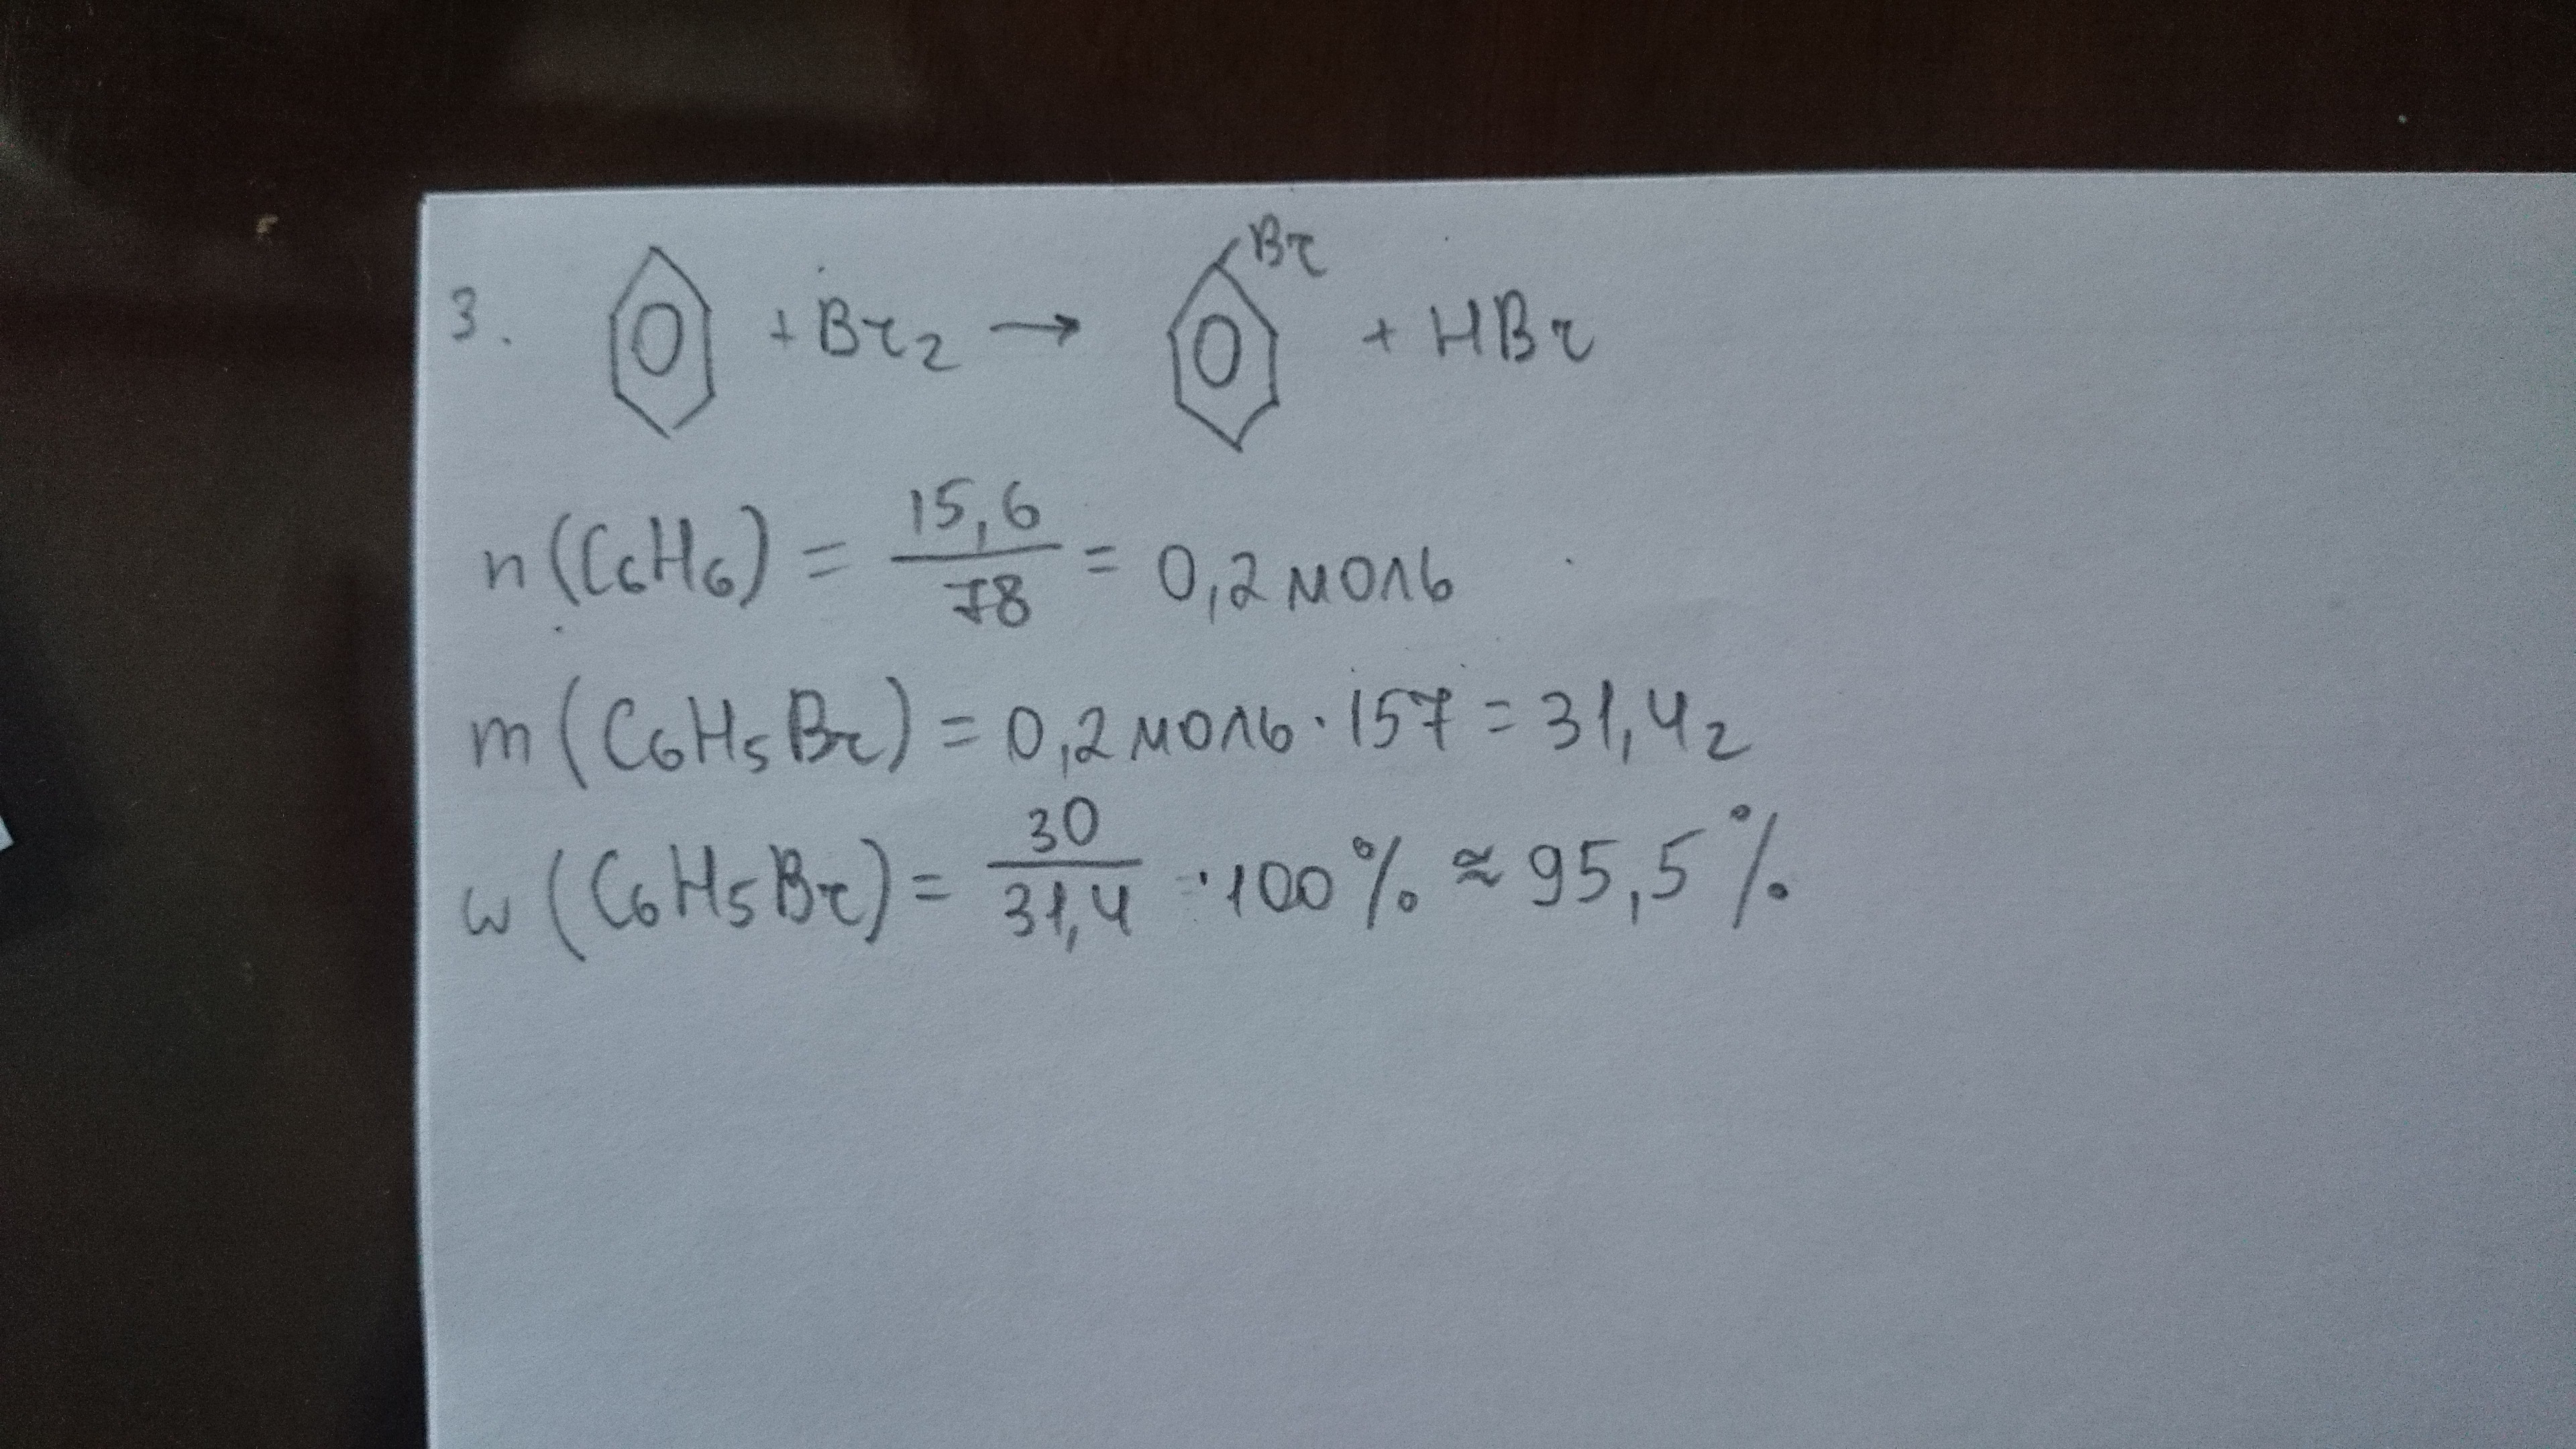 3. + Br₂ → Br + HBr
n(C₆H₆) = 15,6/78 = 0,2 моль
m(C₆H₅Br) = 0,2 моль · 157 = 31,4 г
w(C₆H₅Br) = 30/31,4 · 100% ≈ 95,5%